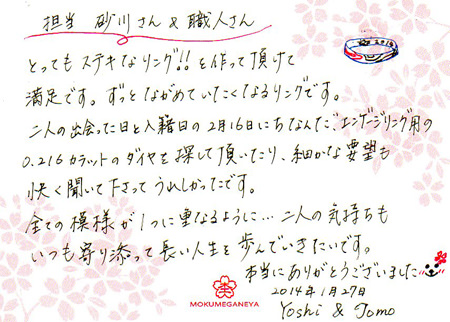 担当 砂川さん & 職人さん
とってもステキなリング!!を作って頂けて
満足です。ずっとながめていたくなるリングです。
二人の出会った日と入籍日の2月16日にちなんだ、エンゲージリング用の
0.216カラットのダイヤを探して頂いたり、細かな要望も
快く聞いて下さってうれしかったです。
全ての模様が1つに重なるように…二人の気持ちも
いつも寄り添って長い人生を歩んでいきたいです。
本当にありがとうございました
2014年1月27日
Yoshi & Tomo
MOKUMEGANEYA